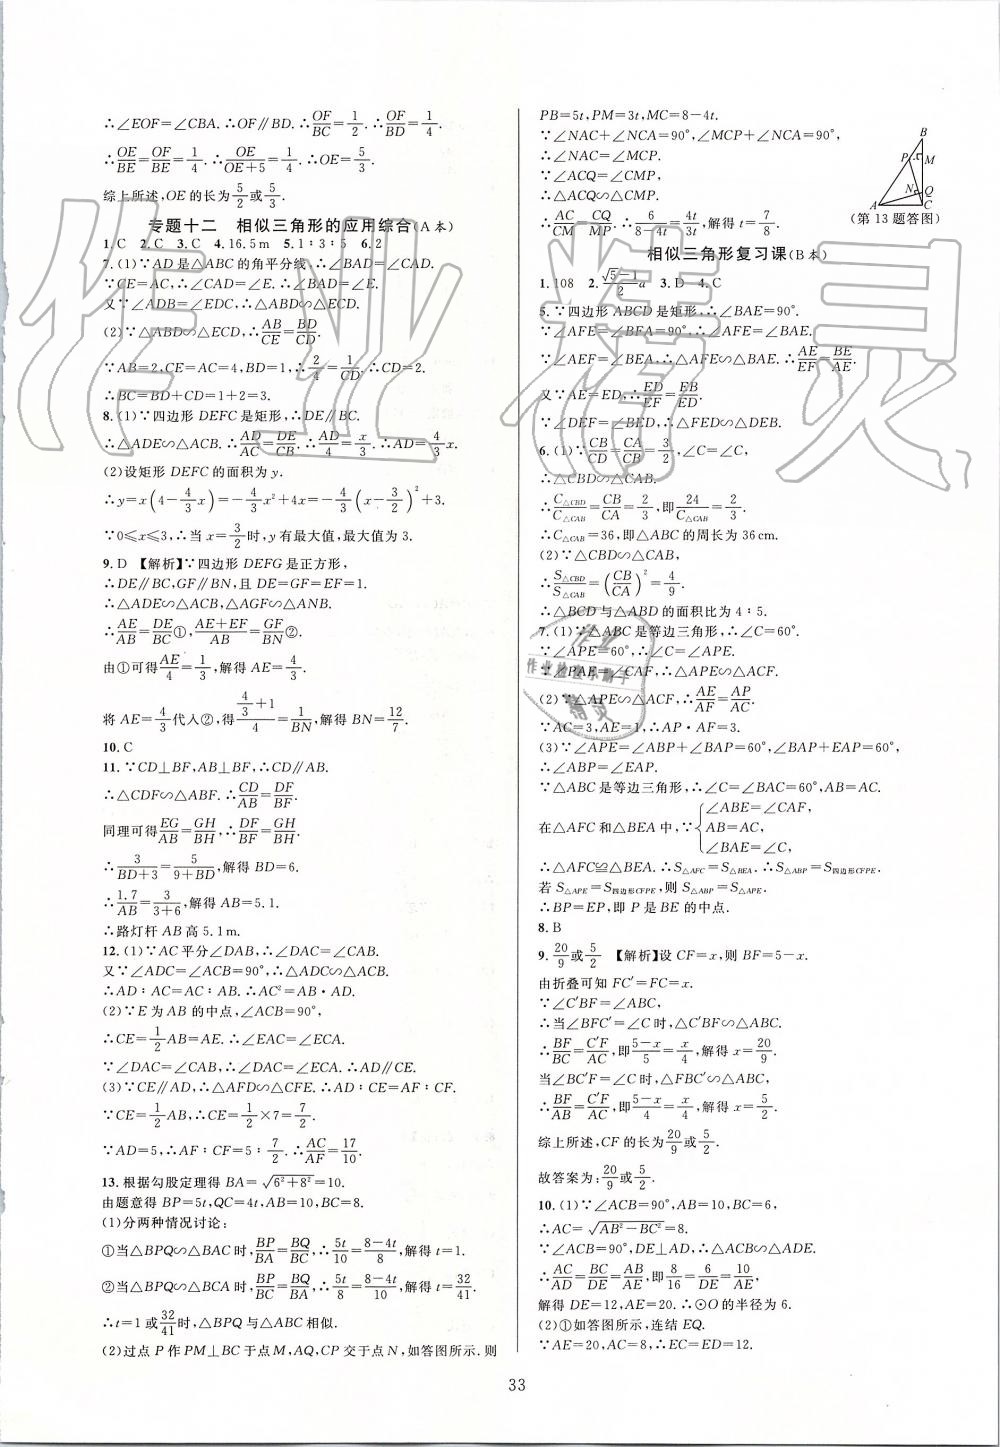 ∴∠EOF=∠CBA.∴OF∥BD.∴OF/BC=1/2.∴OF/BD=1/4.
∴OE/BE=OF/BE=1/4.∴OE/(OE+5)=1/4.∴OE=5/3.
综上所述,OE的长为5/2或5/3.
专题十二 相似三角形的应用综合(A本)
1.C 2.C 3.C 4.16.5m 5.1∶3∶5 6.2
7.(1)∵AD是△ABC的角平分线,∴∠BAD=∠CAD.
∵CE=AC,∴∠CAD=∠E.∴∠BAD=∠E.
又∵∠ADB=∠EDC,∴△ABD∽△ECD.
(2)∵△ABD∽△ECD,∴AB/CE=BD/CD.
∵AB=2,CE=AC=4,BD=1,∴2/4=1/CD.∴CD=2.
∴BC=BD+CD=1+2=3.
8.(1)∵四边形DEFC是矩形,∴DE∥BC.
∴△ADE∽△ACB.∴AD/AC=DE/CB.∴AD/4=x/3.∴AD=4/3x.
(2)设矩形DEFC的面积为y.
∴y=x(4−4/3x)=−4/3x²+4x=−4/3(x−3/2)²+3.
∵0⩽x⩽3,∴当x=3/2时,y有最大值,最大值为3.
9.D 【解析】∵四边形DEFG是正方形,
∴DE∥BC,GF∥BN,且DE=GF=EF=1.
∴△ADE∽△ACB,△AGF∽△ANB.
∴AE/AB=DE/BC①,(AE+EF)/AB=GF/BN②.
由①可得AE/4=1/3,解得AE=4/3.
将AE=4/3代人②,得(4/3+1)/4=1/BN,解得BN=12/7.
10.C
11.∵CD⊥BF,AB⊥BF,∴CD∥AB.
∴△CDF∽△ABF.∴CD/AB=DF/BF.
同理可得EG/AB=GH/BH.∴DF/BF=GH/BH.
∴3/(BD+3)=5/(9+BD),解得BD=6.
∴1.7/AB=3/(3+6),解得AB=5.1.
∴路灯杆AB高5.1m.
12.(1)∵AC平分∠DAB,∴∠DAC=∠CAB.
又∵∠ADC=∠ACB=90°,∴△ADC∽△ACB.
∴AD∶AC=AC∶AB.∴AC²=AB·AD.
(2)∵E为AB的中点,∠ACB=90°,
∴CE=1/2AB=AE.∴∠EAC=∠ECA.
∵∠DAC=∠CAB,∴∠DAC=∠ECA.∴AD∥CE.
(3)∵CE∥AD,∴△AFD∽△CFE.∴AD∶CE=AF∶CF.
∵CE=1/2AB,∴CE=1/2×7=7/2.
∵AD=5,∴AF∶CF=5∶7/2.∴AC/AF=17/10.
13.根据勾股定理得BA=√(6²+8²)=10.
由题意得BP=5t,QC=4t,AB=10,BC=8.
(1)分两种情况讨论:
①当△BPQ∽△BAC时,BP/BA=BQ/BC,∴5t/10=(8−4t)/8,解得t=1.
②当△BPQ∽△BCA时,BP/BC=BQ/BA,∴5t/8=(8−4t)/10,解得t=32/41.
∴t=1或32/41时,△BPQ与△ABC相似.
(2)过点P作PM⊥BC于点M,AQ,CP交于点N,如答图所示.则
PB=5t,PM=3t,MC=8−4t.
∵∠NAC+∠NCA=90°,∠MCP+∠NCA=90°,
∴∠NAC=∠MCP.
∵∠ACQ=∠CMP,
∴△ACQ∽△CMP.
∴AC/CM=CQ/MP.∴6/(8−4t)=4t/3t,解得t=7/8.
B
P
M
N
Q
A
C
(第13题答图)
相似三角形复习课(B本)
1.108 2.(√5−1)/2 a 3.D 4.C
5.∵四边形ABCD是矩形,∴∠BAE=90°.
∴∠AFE=∠BFA=90°.∴∠AFE=∠BAE.
∵∠AEF=∠BEA,∴△AFE∽△BAE.∴AE/EF=BE/AE.
又∵AE=ED,∴ED/EF=EB/ED.
∵∠DEF=∠BED,∴△FED∽△DEB.
6.(1)∵CB/CD=CA/CB=3/2,∠C=∠C,
∴△CBD∽△CAB.
∴C△CBD/C△CAB=CB/CA=2/3,即24/C△CAB=2/3.
∴C△CAB=36,即△ABC的周长为36cm.
(2)∵△CBD∽△CAB,
∴S△CBD/S△CAB=(CB/CA)²=4/9.
∴△BCD与△ABD的面积比为4∶5.
7.(1)∵△ABC是等边三角形,∴∠C=60°.
∵∠APE=60°,∴∠C=∠APE.
∵∠PAE=∠CAF,∴△APE∽△ACF.
(2)∵△APE∽△ACF,∴AE/AF=AP/AC.
∵AC=3,AE=1,∴AP·AF=3.
(3)∵∠APE=∠ABP+∠BAP=60°,∠BAP+EAP=60°,
∴∠ABP=∠EAP.
∵△ABC是等边三角形,∴∠C=∠BAC=60°,AB=AC.
∠ABE=∠CAF,
在△AFC和△BEA中,∵{AB=AC,
∠BAE=∠C,
∴△AFC≌△BEA.∴S△AFC=S△BEA.∴S△ABP=S四边形CFPE.
若S△APE=S四边形CFPE,则S△ABP=S△APE.
∴BP=EP,即P是BE的中点.
8.B
9.20/9或5/2 【解析】设CF=x,则BF=5−x.
由折叠可知FC′=FC=x.
∵∠C′BF=∠ABC,
∴当∠BFC′=∠C时,△C′BF∽△ABC.
∴BF/BC=C′F/AC,即(5−x)/5=x/4,解得x=20/9.
当∠BC′F=∠C时,△FBC′∽△ABC.
∴BF/AB=C′F/AC,即(5−x)/4=x/4,解得x=5/2.
综上所述,CF的长为20/9或5/2.
故答案为:20/9或5/2.
10.(1)∵∠ACB=90°,AB=10,BC=6,
∴AC=√(AB²−BC²)=8.
∵∠ACB=90°,DE⊥AD,∴△ACB∽△ADE.
∴AC/AD=BC/DE=AB/AE,即8/16=6/DE=10/AE,
解得DE=12,AE=20.∴⊙O的半径为6.
(2)①如答图所示,连结EQ.
∵AE=20,AC=8,∴EC=ED=12.
33
作业精灵